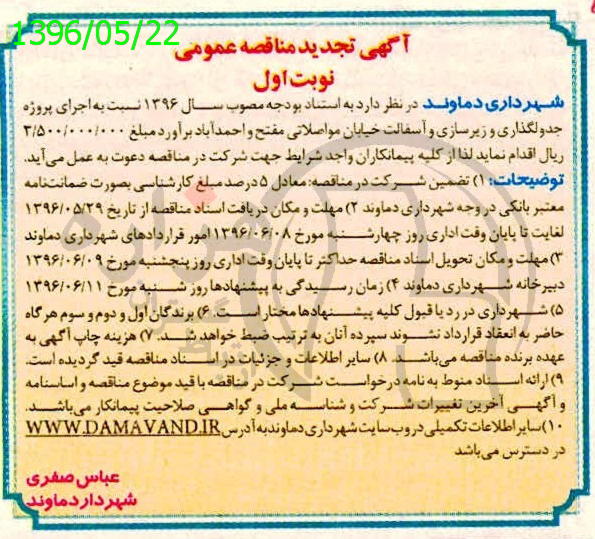 1396/05/22
آگهی تجدید مناقصه عمومی
نوبت اول
شهرداری دماوند در نظر دارد به استناد بودجه مصوب سال ۱۳۹۶ نسبت به اجرای پروژه
جدولگذاری و زیرسازی و آسفالت خیابان مواصلاتی مفتح و احمدآباد برآورد مبلغ ۳/۵۰۰/۰۰۰/۰۰۰
ریال اقدام نماید لذا از کلیه پیمانکاران واجد شرایط جهت شرکت در مناقصه دعوت به عمل می‌آید.
توضیحات: ۱) تضمین شرکت در مناقصه: معادل ۵ درصد مبلغ کارشناسی بصورت ضمانت‌نامه
معتبر بانکی در وجه شهرداری دماوند ۲) مهلت و مکان دریافت اسناد مناقصه از تاریخ ۱۳۹۶/۰۵/۲۹
لغایت تا پایان وقت اداری روز چهارشنبه مورخ ۱۳۹۶/۰۶/۰۸ امور قراردادهای شهرداری دماوند
۳) مهلت و مکان تحویل اسناد مناقصه حداکثر تا پایان وقت اداری روز پنجشنبه مورخ ۱۳۹۶/۰۶/۰۹
دبیرخانه شهرداری دماوند ۴) زمان رسیدگی به پیشنهادها روز شنبه مورخ ۱۳۹۶/۰۶/۱۱
۵) شهرداری در رد یا قبول کلیه پیشنهادها مختار است. ۶) برندگان اول و دوم و سوم هرگاه
حاضر به انعقاد قرارداد نشوند سپرده آنان به ترتیب ضبط خواهد شد. ۷) هزینه چاپ آگهی به
عهده برنده مناقصه می‌باشد. ۸) سایر اطلاعات و جزئیات در اسناد مناقصه قید گردیده است.
۹) ارائه اسناد منوط به نامه درخواست شرکت در مناقصه با قید موضوع مناقصه و اساسنامه
و آگهی آخرین تغییرات شرکت و شناسه ملی و گواهی صلاحیت پیمانکار می‌باشد.
۱۰) سایر اطلاعات تکمیلی در وب سایت شهرداری دماوند به آدرس WWW.DAMAVAND.IR
در دسترس می باشد
عباس صفری
شهردار دماوند